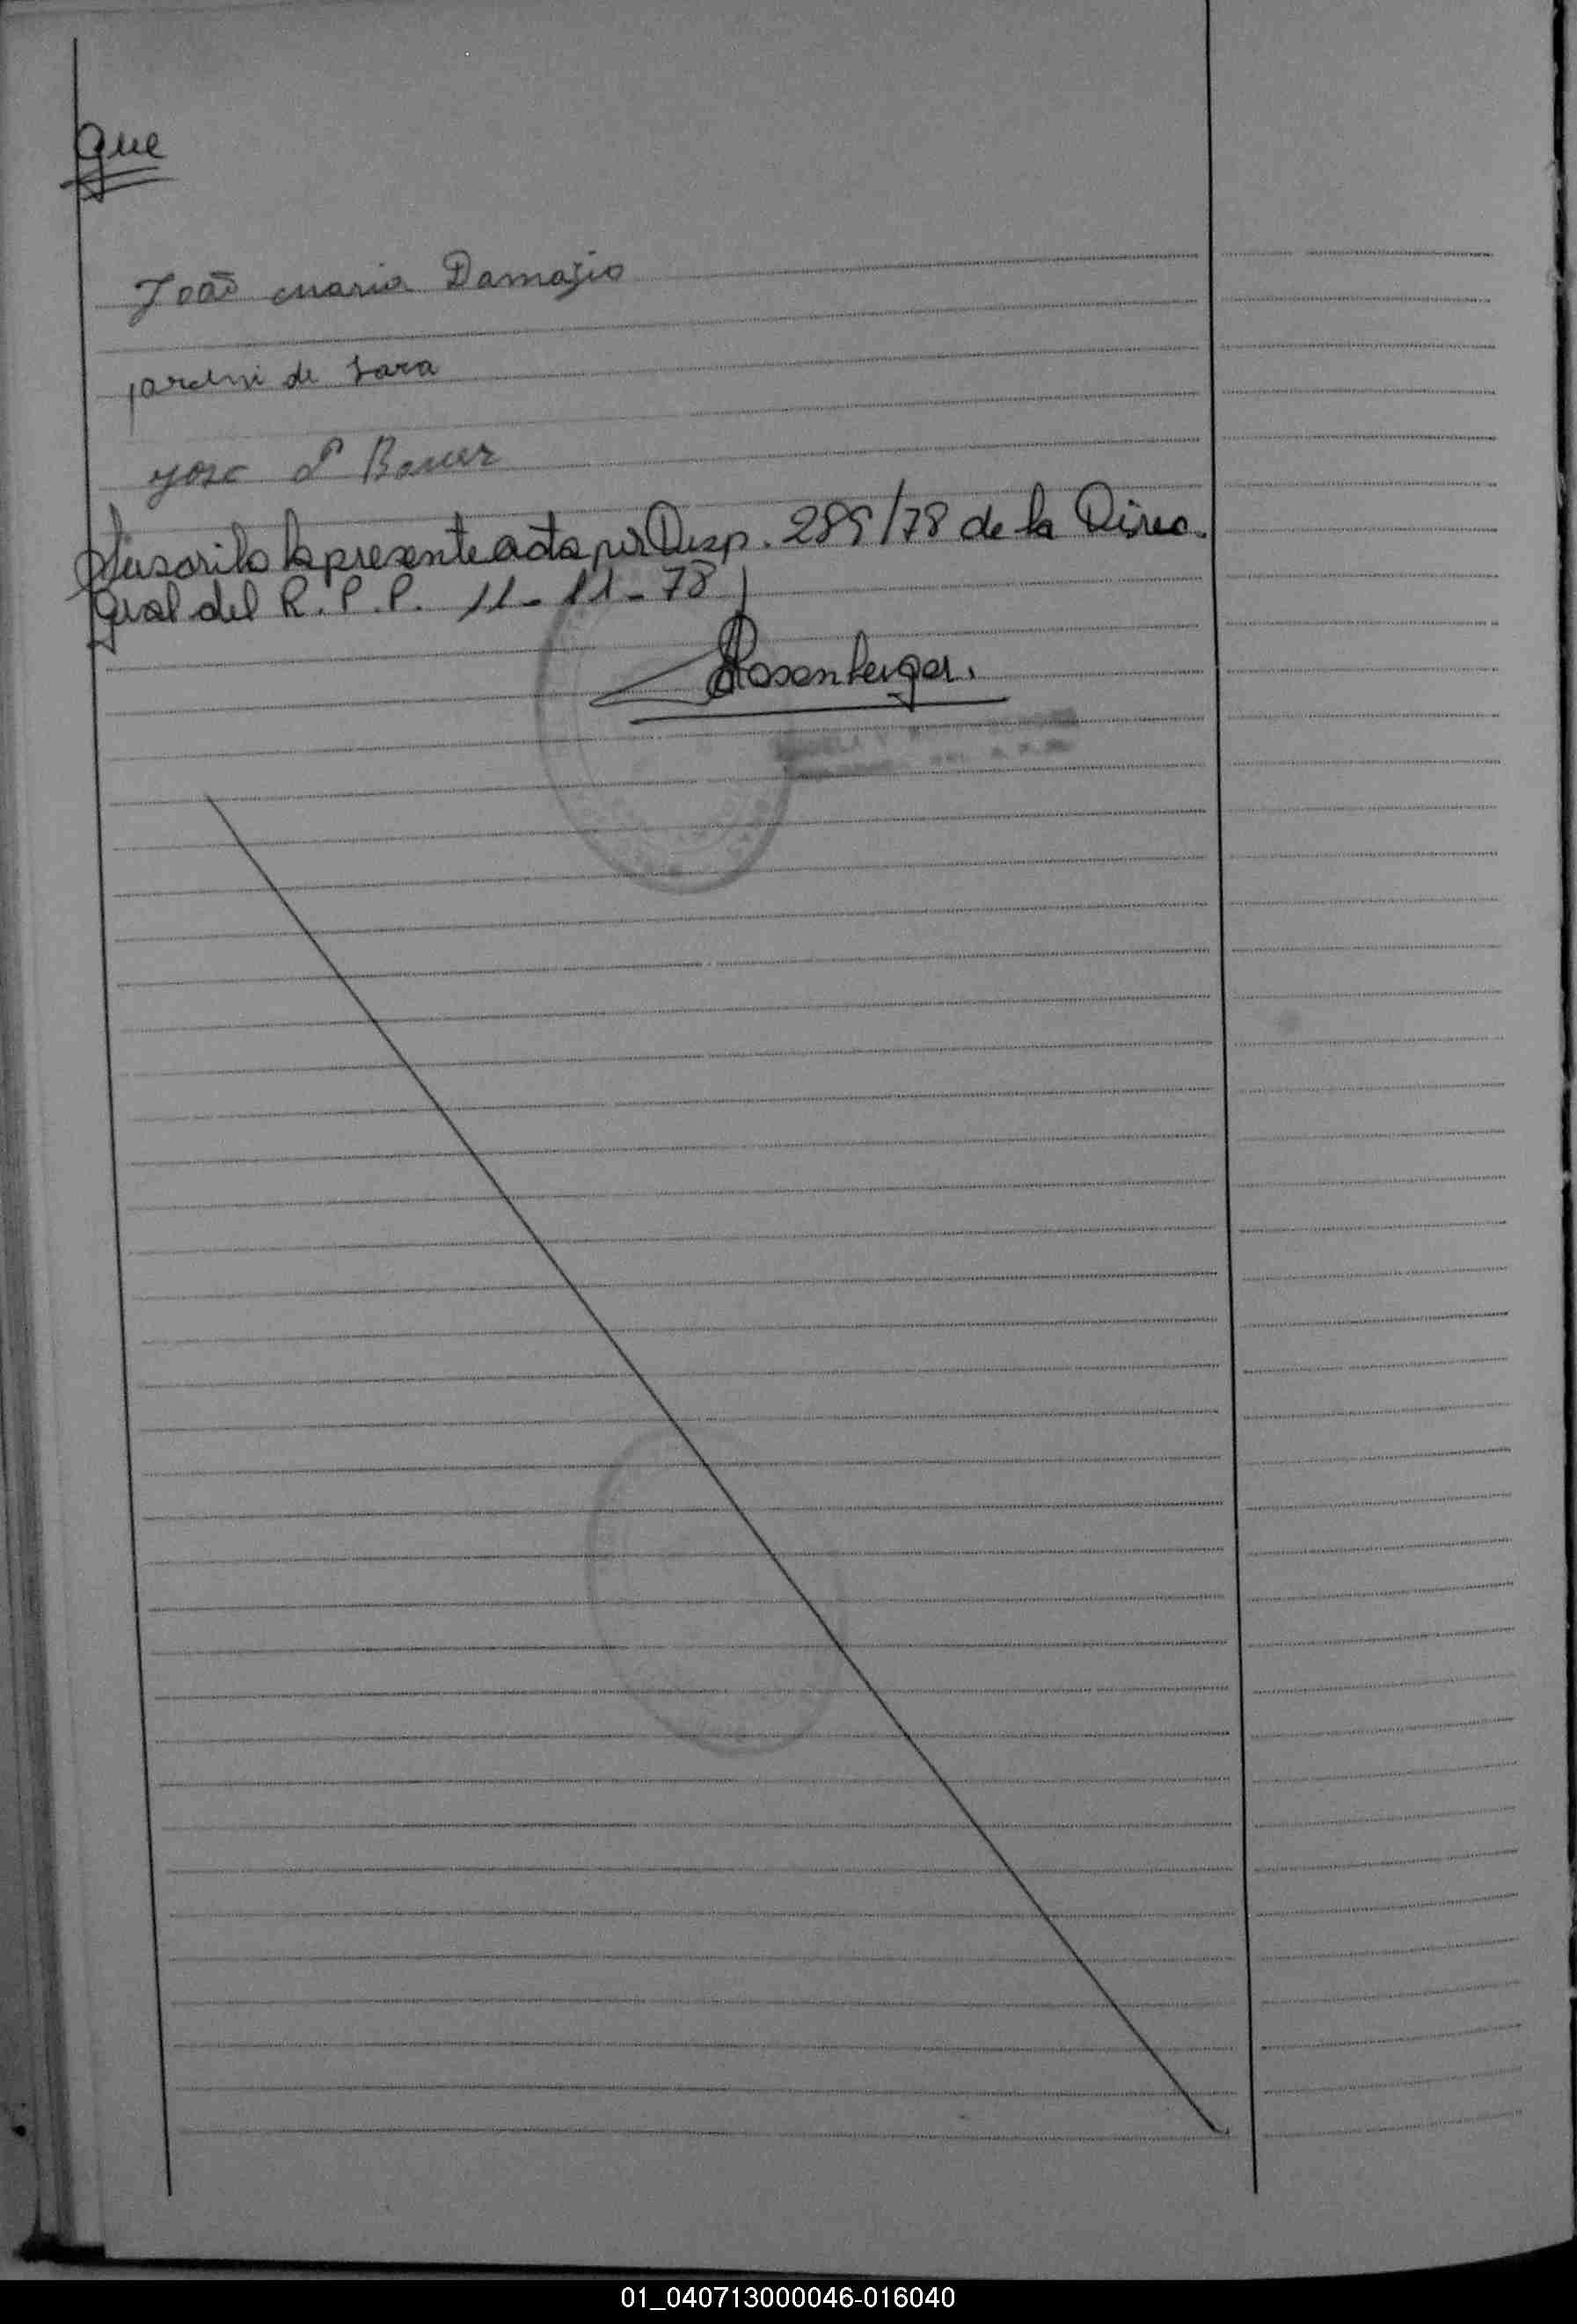 que
João maria Damazio
jardin de Lara
Jose Bauer
Suscrito la presente acta por Desp. 289/78 de la Direc.
gral del R. P. P. 11-11-78
Rosenberger.
01_040713000046-016040